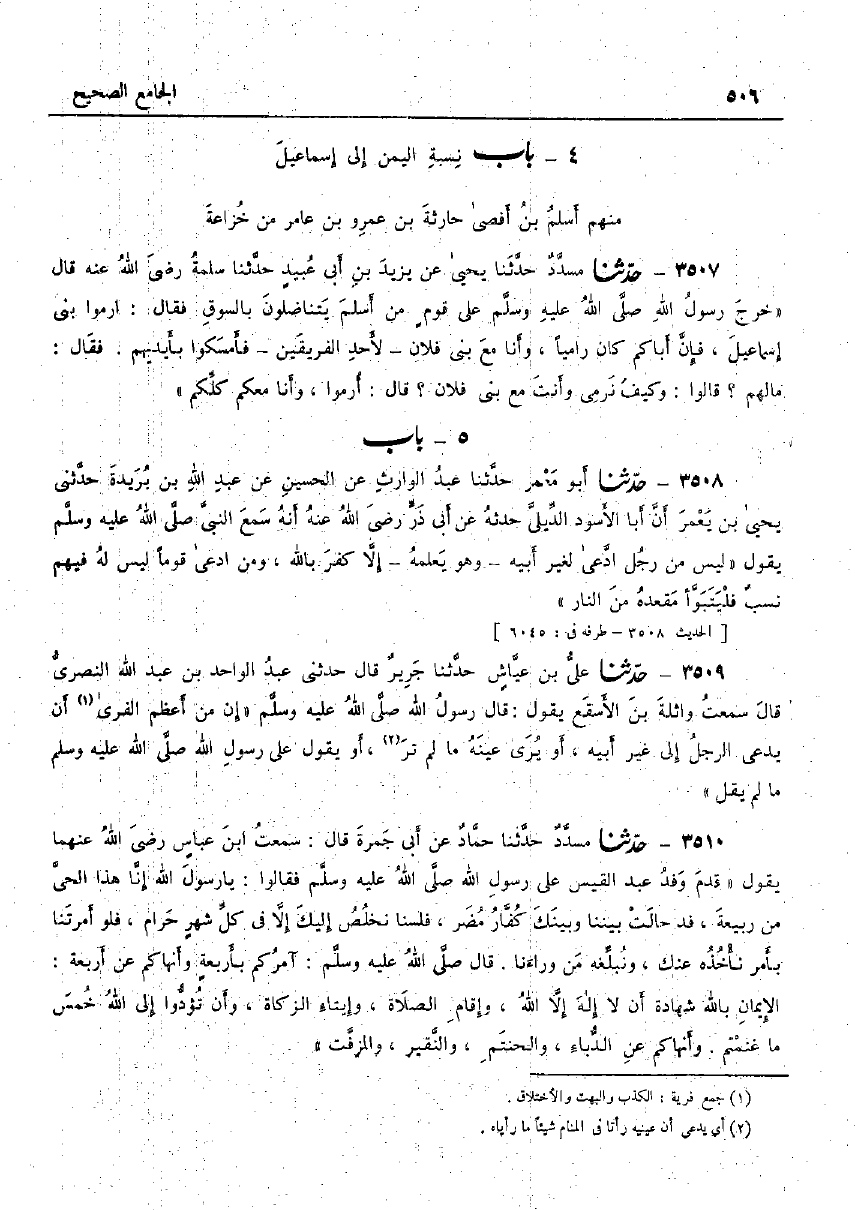 ٥٠٦ الجامع الصحيح
٤ - باب نِسبةِ اليمن إلى إسماعيلَ
منهم أسلمُ بنُ أفصىٰ حارثةَ بن عمرِو بن عامر من خُزاعةَ
٣٥٠٧ - حدّثنا مسدَّدٌ حدَّثَنا يحيىٰ عن يزيدَ بنِ أبى عُبيدٍ حدَّثنا سلمةُ رضىَ اللهُ عنه قال
«خرجَ رسولُ اللهِ صلَّى اللهُ عليهِ وسلَّم على قومٍ من أسلمَ يَتناضلونَ بالسوقِ فقال : ارموا بنى
إسماعيلَ ، فإنَّ أباكم كان رامياً ، وأنا معَ بنى فلان – لأحدِ الفريقَين – فأمسَكوا بأيديهم . فقَال :
مالهم ؟ قالوا : وكيفَ نَرمِى وأنتَ مع بنى فلان ؟ قال : أُرموا ، وأنا معكم كلِّكم»
٥ - باب
٣٥٠٨ - حدّثنا أبو مَعْمر حدَّثنا عبدُ الوارثِ عن الحسينِ عن عبدِ اللهِ بن بُرَيدةَ حدَّثنى
يحيىٰ بن يَعْمرَ أنَّ أبا الأسود الدِّيلىَّ حدثهُ عن أبى ذَرٍّ رضىَ اللهُ عنهُ أنهُ سَمعَ النبىَّ صلَّى اللهُ عليه وسلَّم
يقول «ليس من رجُل ادَّعىٰ لغير أبيه – وهو يَعلمهُ – إلَّا كفرَ بالله ، ومن ادعىٰ قوماً ليس لهُ فيهم
نسبٌ فلْيَتَبَوَّأ مَقعدهُ منَ النار»
[ الحديث ٣٥٠٨ – طرفه فى : ٦٠٤٥ ]
٣٥٠٩ - حدّثنا علىُّ بن عيَّاشٍ حدَّثنا جَريرٌ قال حدثنى عبدُ الواحد بن عبد الله النصرىُّ
قالَ سمعتُ واثلةَ بنَ الأسقَعِ يقول : قال رسولُ الله صلَّى اللهُ عليه وسلَّم «إن من أعظم الفرىٰ(١) أن
يدعى الرجلُ إلى غير أبيه ، أو يُرَى عينَهُ ما لم ترَ(٢) ، أو يقول على رسولِ الله صلَّى الله عليه وسلم
ما لم يقل»
٣٥١٠ - حدّثنا مسدَّدٌ حدَّثنا حمَّادٌ عن أبى جَمرةَ قال : سمعتُ ابنَ عباسٍ رضىَ اللهُ عنهما
يقول «قدمَ وَفدُ عبد القيس على رسولِ الله صلَّى اللهُ عليه وسلَّم فقالوا : يارسولَ الله إنَّا هذا الحىَّ
من ربيعةَ ، قد حالَتْ بيننا وبينَكَ كفَّارُ مُضَر ، فلسنا نخلُصُ إليكَ إلَّا فى كلِّ شهرٍ حَرام ، فلو أمرتَنا
بأمرٍ نأخُذُه عنك ، ونُبلِّغه مَن وراءَنا . قال صلَّى اللهُ عليه وسلَّم : آمرُكم بأربعةٍ وأنهاكم عن أربعة :
الإيمانِ بالله شهادة أن لا إلهَ إلَّا اللهُ ، وإقامِ الصلَاة ، وإيتاءِ الزكاة ، وأن تُؤدُّوا إلى اللهُ خُمسَ
ما غنمْتم . وأنهاكم عنِ الدُّباءِ ، والحنتَمِ ، والنَّقير ، والمزفَّت»
(١) جمع فرية : الكذب والبهت والأختلاق .
(٢) أي يدعى أن عينيه رأتا فى المنام شيئاً ما رأياه .